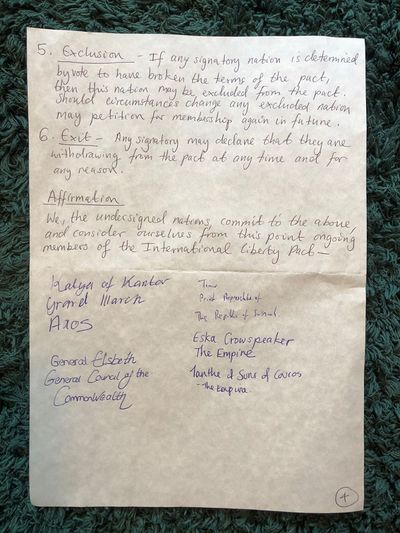 5. Exclusion - If any signatory nation is determined
by vote to have broken the terms of the pact,
then this nation may be excluded from the pact.
Should circumstances change any excluded nation
may petition for membership again in future.
6. Exit - Any signatory may declare that they are
withdrawing from the pact at any time and for
any reason.
Affirmation
We, the undersigned nations, commit to the above,
and consider ourselves from this point ongoing
members of the International Liberty Pact -
Katya of Kantor
Grand March
Axos
General Elsbeth
General Council of the
Commonwealth
The Republic of
Eska Crowspeaker
The Empire
Ianthe of Suns of
4